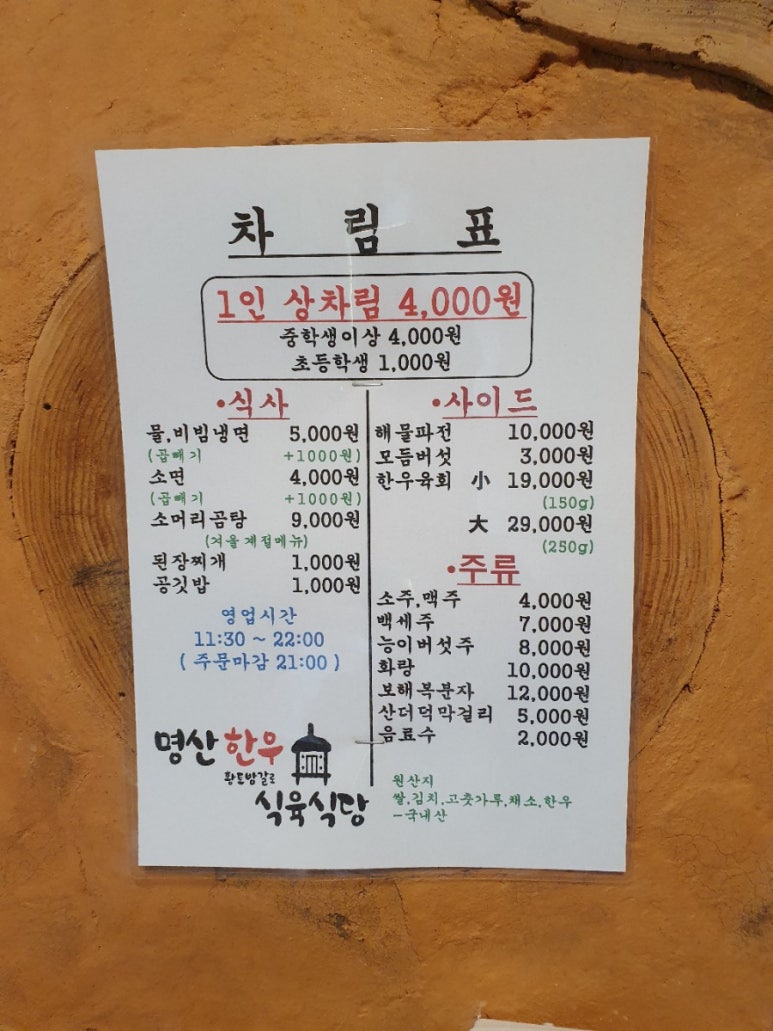 차 림 표
1인 상차림 4,000원
중학생이상 4,000원
초등학생 1,000원
•식사
물,비빔냉면 5,000원
(곱빼기 +1000원)
소면 4,000원
(곱빼기 +1000원)
소머리곰탕 9,000원
(겨울계절메뉴)
된장찌개 1,000원
공깃밥 1,000원
영업시간
11:30 ~ 22:00
( 주문마감 21:00 )
•사이드
해물파전 10,000원
모듬버섯 3,000원
한우육회 小 19,000원
(150g)
大 29,000원
(250g)
•주류
소주,맥주 4,000원
백세주 7,000원
능이버섯주 8,000원
화랑 10,000원
보해복분자 12,000원
산더덕막걸리 5,000원
음료수 2,000원
명산한우
황토방갈로
식육식당
원산지
쌀,김치,고춧가루,채소,한우
-국내산